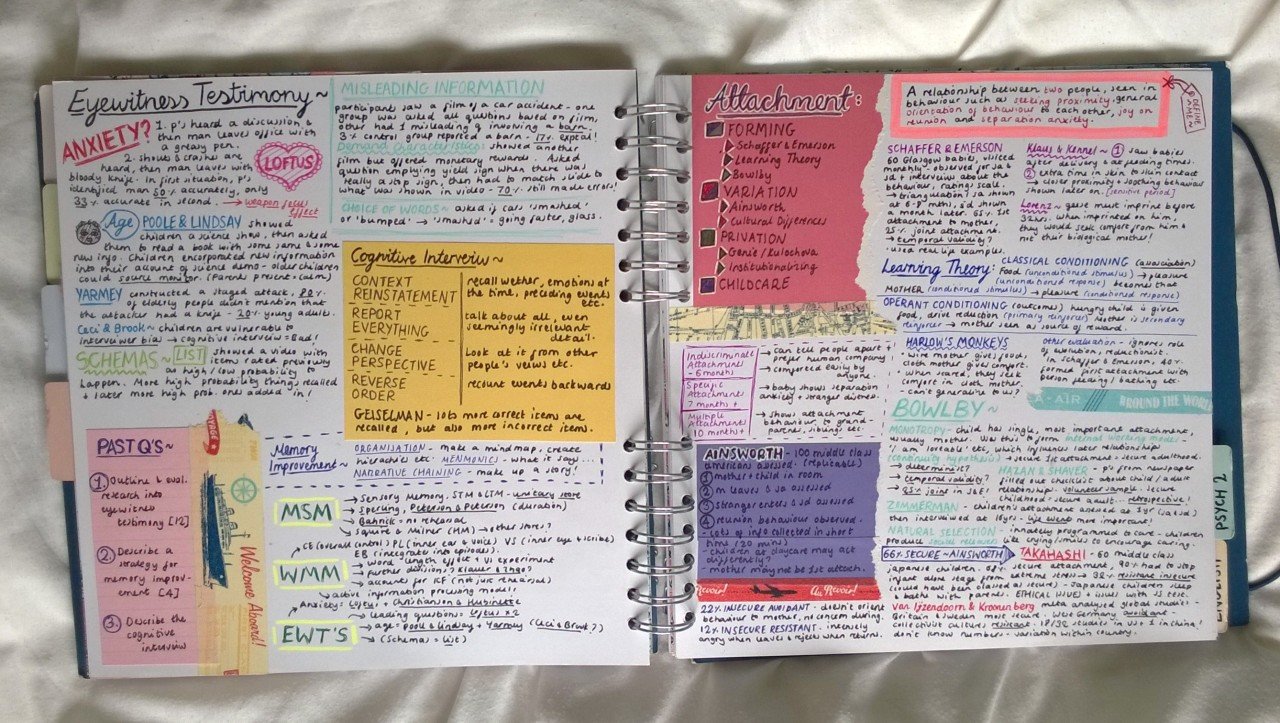 Eyewitness Testimony ~
ANXIETY?
1. p's heard a discussion,
then man leaves office with
a greasy pen.
2. shouts & crashes are
heard, then man leaves with
bloody knife. In first situation, p's
identified man 50% accurately, only
33% accurate in second. → weapon focus
effect
LOFTUS
Age
POOLE & LINDSAY showed
children a science show, then asked
them to read a book with some same & some
new info. Children encorporated new information
into their account of science demo - older children
could source monitor. (Parents present: calm)
YARMEY constructed a staged attack, 80%
of elderly people didn't mention that
the attacker had a knife - 20% young adults.
Ceci & Brook ~ children are vulnerable to
interviewer bias → cognitive interview = Bad!
SCHEMAS ~ LIST showed a video with
items rated previously
as high/low probability to
happen. More high probability things recalled
& later more high prob. ones added in!
MISLEADING INFORMATION
participants saw a film of a car accident - one
group was asked all questions based on film,
other had 1 misleading q involving a barn.
3% control group reported a barn - 17% exptal!
Demand characteristics: showed another
film but offered monetary rewards. Asked
question emptying yield sign when there was
really a stop sign, then had to match slide to
what was shown in video - 70% still made errors!
CHOICE OF WORDS ~ asked if cars 'smashed'
or 'bumped' → 'smashed' = going faster, glass.
Cognitive Interview ~
CONTEXT
REINSTATEMENT
recall wether, emotions at
the time, preceding events
etc.
REPORT
EVERYTHING
talk about all, even
seemingly irrelevant
detail.
CHANGE
PERSPECTIVE
Look at it from other
people's veiws etc.
REVERSE
ORDER
recount events backwards
GEISELMAN - lots more correct items are
recalled, but also more incorrect items.
PAST Q'S ~
1 Outline & eval.
research into
eyewitness
testimony [12]
2 Describe a
strategy for
memory improv-
ement [4]
3 Describe the
cognitive
interview
Welcome Aboard!
Memory
Improvement ~
ORGANISATION - make a mind map, create
hierarchies etc. MENMONICS - what it says...
NARRATIVE CHAINING - make up a story!
MSM
Sensory Memory, STM & LTM - unitary store
Sperling, Peterson & Peterson (duration)
Bahrick = no rehearsal
Squire & Milner (HM) → other stores?
WMM
CE (overall control) PL (inner ear & voice) VS (inner eye & scribe)
EB (reintegrates into episodes).
word length effect, VI experiment
further division? Klauer & Zhao?
accounts for KF (not just rehearsal)
active information processing model!
EWT'S
Anxiety = Loftus + Christianson & Hubinette
leading questions: Loftus x 2
age: Poole & Lindsay + Yarmey (Ceci & Brook?)
(Schemas = list)
Attachment:
FORMING
Schaffer & Emerson
Learning Theory
Bowlby
VARIATION
Ainsworth
Cultural Differences
PRIVATION
Genie / Kulochova
Institutionalizing
CHILDCARE
A relationship between two people, seen in
behaviour such as seeking proximity, general
orientation of behaviour to each other, joy on
reunion and separation anxiety.
SCHAFFER & EMERSON
60 Glasgow babies, visited
monthly - observed for sa &
sd + interview about the
behaviour, rating scale.
Triangulation? sa shown
at 6-8 mths, sd shown
a month later. 65% 1st
attachment to mother,
25% joint attachment.
→ temporal validity?
→ saw real life examples.
Klaus & Kennel ~ 1 saw babies
after delivery & at feeding times.
2 extra time in skin to skin contact
→ closer proximity + soothing behaviour
shown later on. [sensitive period]
Lorenz ~ geese must imprint before
32hrs. When imprinted on him,
they would seek comfort from him &
not their biological mother!
Learning Theory:
CLASSICAL CONDITIONING (association)
Food (unconditioned stimulus) → pleasure
(unconditioned reponse) becomes that
MOTHER (conditioned stimulus) → pleasure (conditioned response)
OPERANT CONDITIONING (outcomes) hungry child is given
food, drive reduction (primary reinforcer) Mother is secondary
reinforcer → mother seen as source of reward.
HARLOW'S MONKEYS
- wire mother gives food,
cloth mother gives comfort.
- When scared, they seek
comfort in cloth mother.
Can't generalize to us?
other evaluation - ignores role
of evolution, reductionist.
in Schaffer & Emerson, 40%
formed first attachment with
person feeding / bathing etc.
Indiscriminate
Attachments
- 6 months
→ can tell people apart &
prefer human company
→ comforted easily by
anyone.
Specific
Attachment
7 months +
→ baby shows separation
anxiety & stranger distress.
Multiple
Attachments
10 months +
→ shows attachment
behaviour to grand-
parents, siblings etc.
A-AIR AROUND THE WORLD
BOWLBY ~
MONOTROPY - child has single, most important attachment,
usually mother. Uses this to form internal working model -
'I am loveable' etc, which influences later relationships.
(continuity hypothesis) → secure 1st attachment → secure adulthood.
→ determinist?
→ temporal validity?
→ 25% joint in S&E
HAZAN & SHAVER - p's from newspaper
filled out checklist about child / adult
relationship - volunteer sample. secure
childhood = secure adult. retrospective!
ZIMMERMAN - children's attachment assessed at 1yr (sa & sd)
then interviewed at 16yrs - life events more important!
NATURAL SELECTION - innately programmed to care - children
produce social releasers like crying / smiles to encourage caring.
AINSWORTH - 100 middle class
americans assessed. (replicable)
1 mother & child in room
2 m leaves & sa assessed
3 stranger enters & sd assessed
4 reunion behaviour observed.
- Lots of info collected in short
time (20 mins)
- children at daycare may act
differently?
- mother may not be 1st attach.
Au Revoir!
66% SECURE ~ AINSWORTH
22% INSECURE AVOIDANT - doesn't orient
behaviour to mother, no concern during.
12% INSECURE RESISTANT - intensely
angry when leaves & rejects when returns.
TAKAHASHI - 60 middle class
Japanese children. 68% secure attachment. 90% had to stop
infant alone stage from extreme stress → 32% resistant insecure
(could have been classed as secure) - Japanese children sleep
& bath with parents. ETHICAL ISSUES + issues with SS test.
Van Ijzendoorn & Kroonenberg meta analysed global studies:
Britain & Sweden more secure, West Germany avoidant &
collectivist cultures resistant. 18/32 studies in US & 1 in China!
don't know numbers - variation within country.
PSYCH 2
ENGLISH